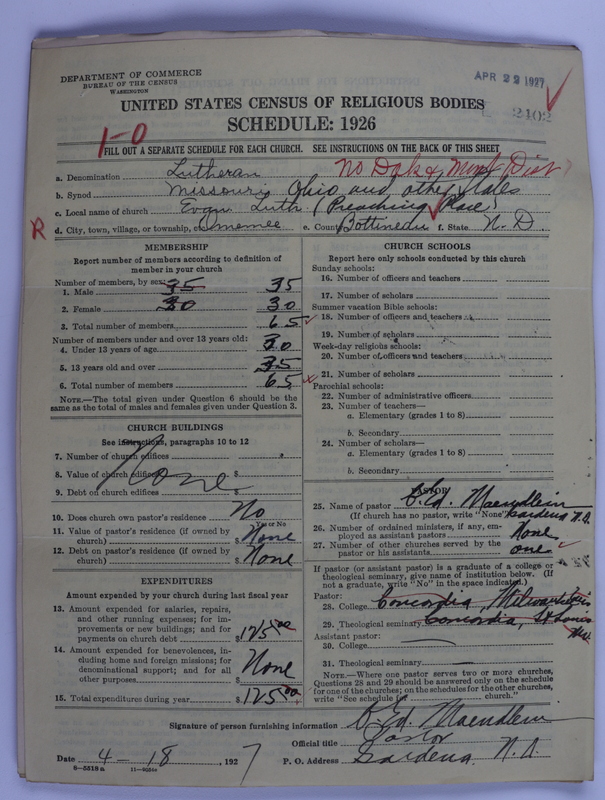 DEPARTMENT OF COMMERCE
BUREAU OF THE CENSUS
WASHINGTON
APR 22 1927
2402
UNITED STATES CENSUS OF RELIGIOUS BODIES
SCHEDULE: 1926
1-0
FILL OUT A SEPARATE SCHEDULE FOR EACH CHURCH. SEE INSTRUCTIONS ON THE BACK OF THIS SHEET
a. Denomination Lutheran No Dak & Mont Dist
b. Synod Missouri, Ohio and other States
c. Local name of church Evan Luth (Preaching Place)
R d. City, town, village, or township, etc. Omemee e. County Bottineau f. State N. D.
MEMBERSHIP
Report number of members according to definition of
member in your church
Number of members, by sex:
1. Male 35 35
2. Female 30 30
3. Total number of members 65
Number of members under and over 13 years old:
4. Under 13 years of age 30
5. 13 years old and over 35
6. Total number of members 65
NOTE.—The total given under Question 6 should be
same as the total of males and females given under Question 3.
CHURCH BUILDINGS
See instructions, paragraphs 10 to 12
7. Number of church edifices
8. Value of church edifices $
None
9. Debt on church edifices $
10. Does church own pastor's residence No
Yes or No
11. Value of pastor's residence (if owned by
church) $ None
12. Debt on pastor's residence (if owned by
church) $ None
EXPENDITURES
Amount expended by your church during last fiscal year
13. Amount expended for salaries, repairs,
and other running expenses; for im-
provements or new buildings; and for
payments on church debt $ 125 00
14. Amount expended for benevolences, in-
cluding home and foreign missions; for
denominational support; and for all
other purposes $ None
15. Total expenditures during year $ 125 00
CHURCH SCHOOLS
Report here only schools conducted by this church
Sunday schools:
16. Number of officers and teachers
17. Number of scholars
Summer vacation Bible schools:
18. Number of officers and teachers
19. Number of scholars
Week-day religious schools:
20. Number of officers and teachers
21. Number of scholars
Parochial schools:
22. Number of administrative officers
23. Number of teachers—
a. Elementary (grades 1 to 8)
b. Secondary
24. Number of scholars—
a. Elementary (grades 1 to 8)
b. Secondary
PASTOR
25. Name of pastor Ed. Maendlein
(If church has no pastor, write "None") Gardena N.D.
26. Number of ordained ministers, if any, em-
ployed as assistant pastors None
27. Number of other churches served by the
pastor or his assistants one
If pastor (or assistant pastor) is a graduate of a college or
theological seminary, give name of institution below. (If
not a graduate, write "No" in the place indicated.)
Pastor:
28. College Concordia, Milwaukee, Wis
29. Theological seminary Concordia, St Louis
Mo.
Assistant pastor:
30. College
31. Theological seminary
NOTE.—Where one pastor serves two or more churches,
Questions 28 and 29 should be answered only on the schedule
for one of the churches; on the schedules for the other churches,
write "See schedule for church."
Signature of person furnishing information Ed. Maendlein
Official title Pastor
Date 4-18, 1927 P. O. Address Gardena N. D.
8-5518a